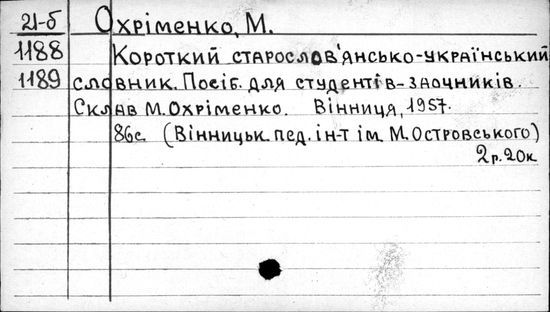 21-б Охріменко, М.
1188 Короткий старослов'янсько-український
1189 словник. Посіб. для студентів-заочників.
Склав М. Охріменко. Вінниця, 1957.
86с. (Вінницьк. пед. ін-т ім. М. Островського)
2р. 20к